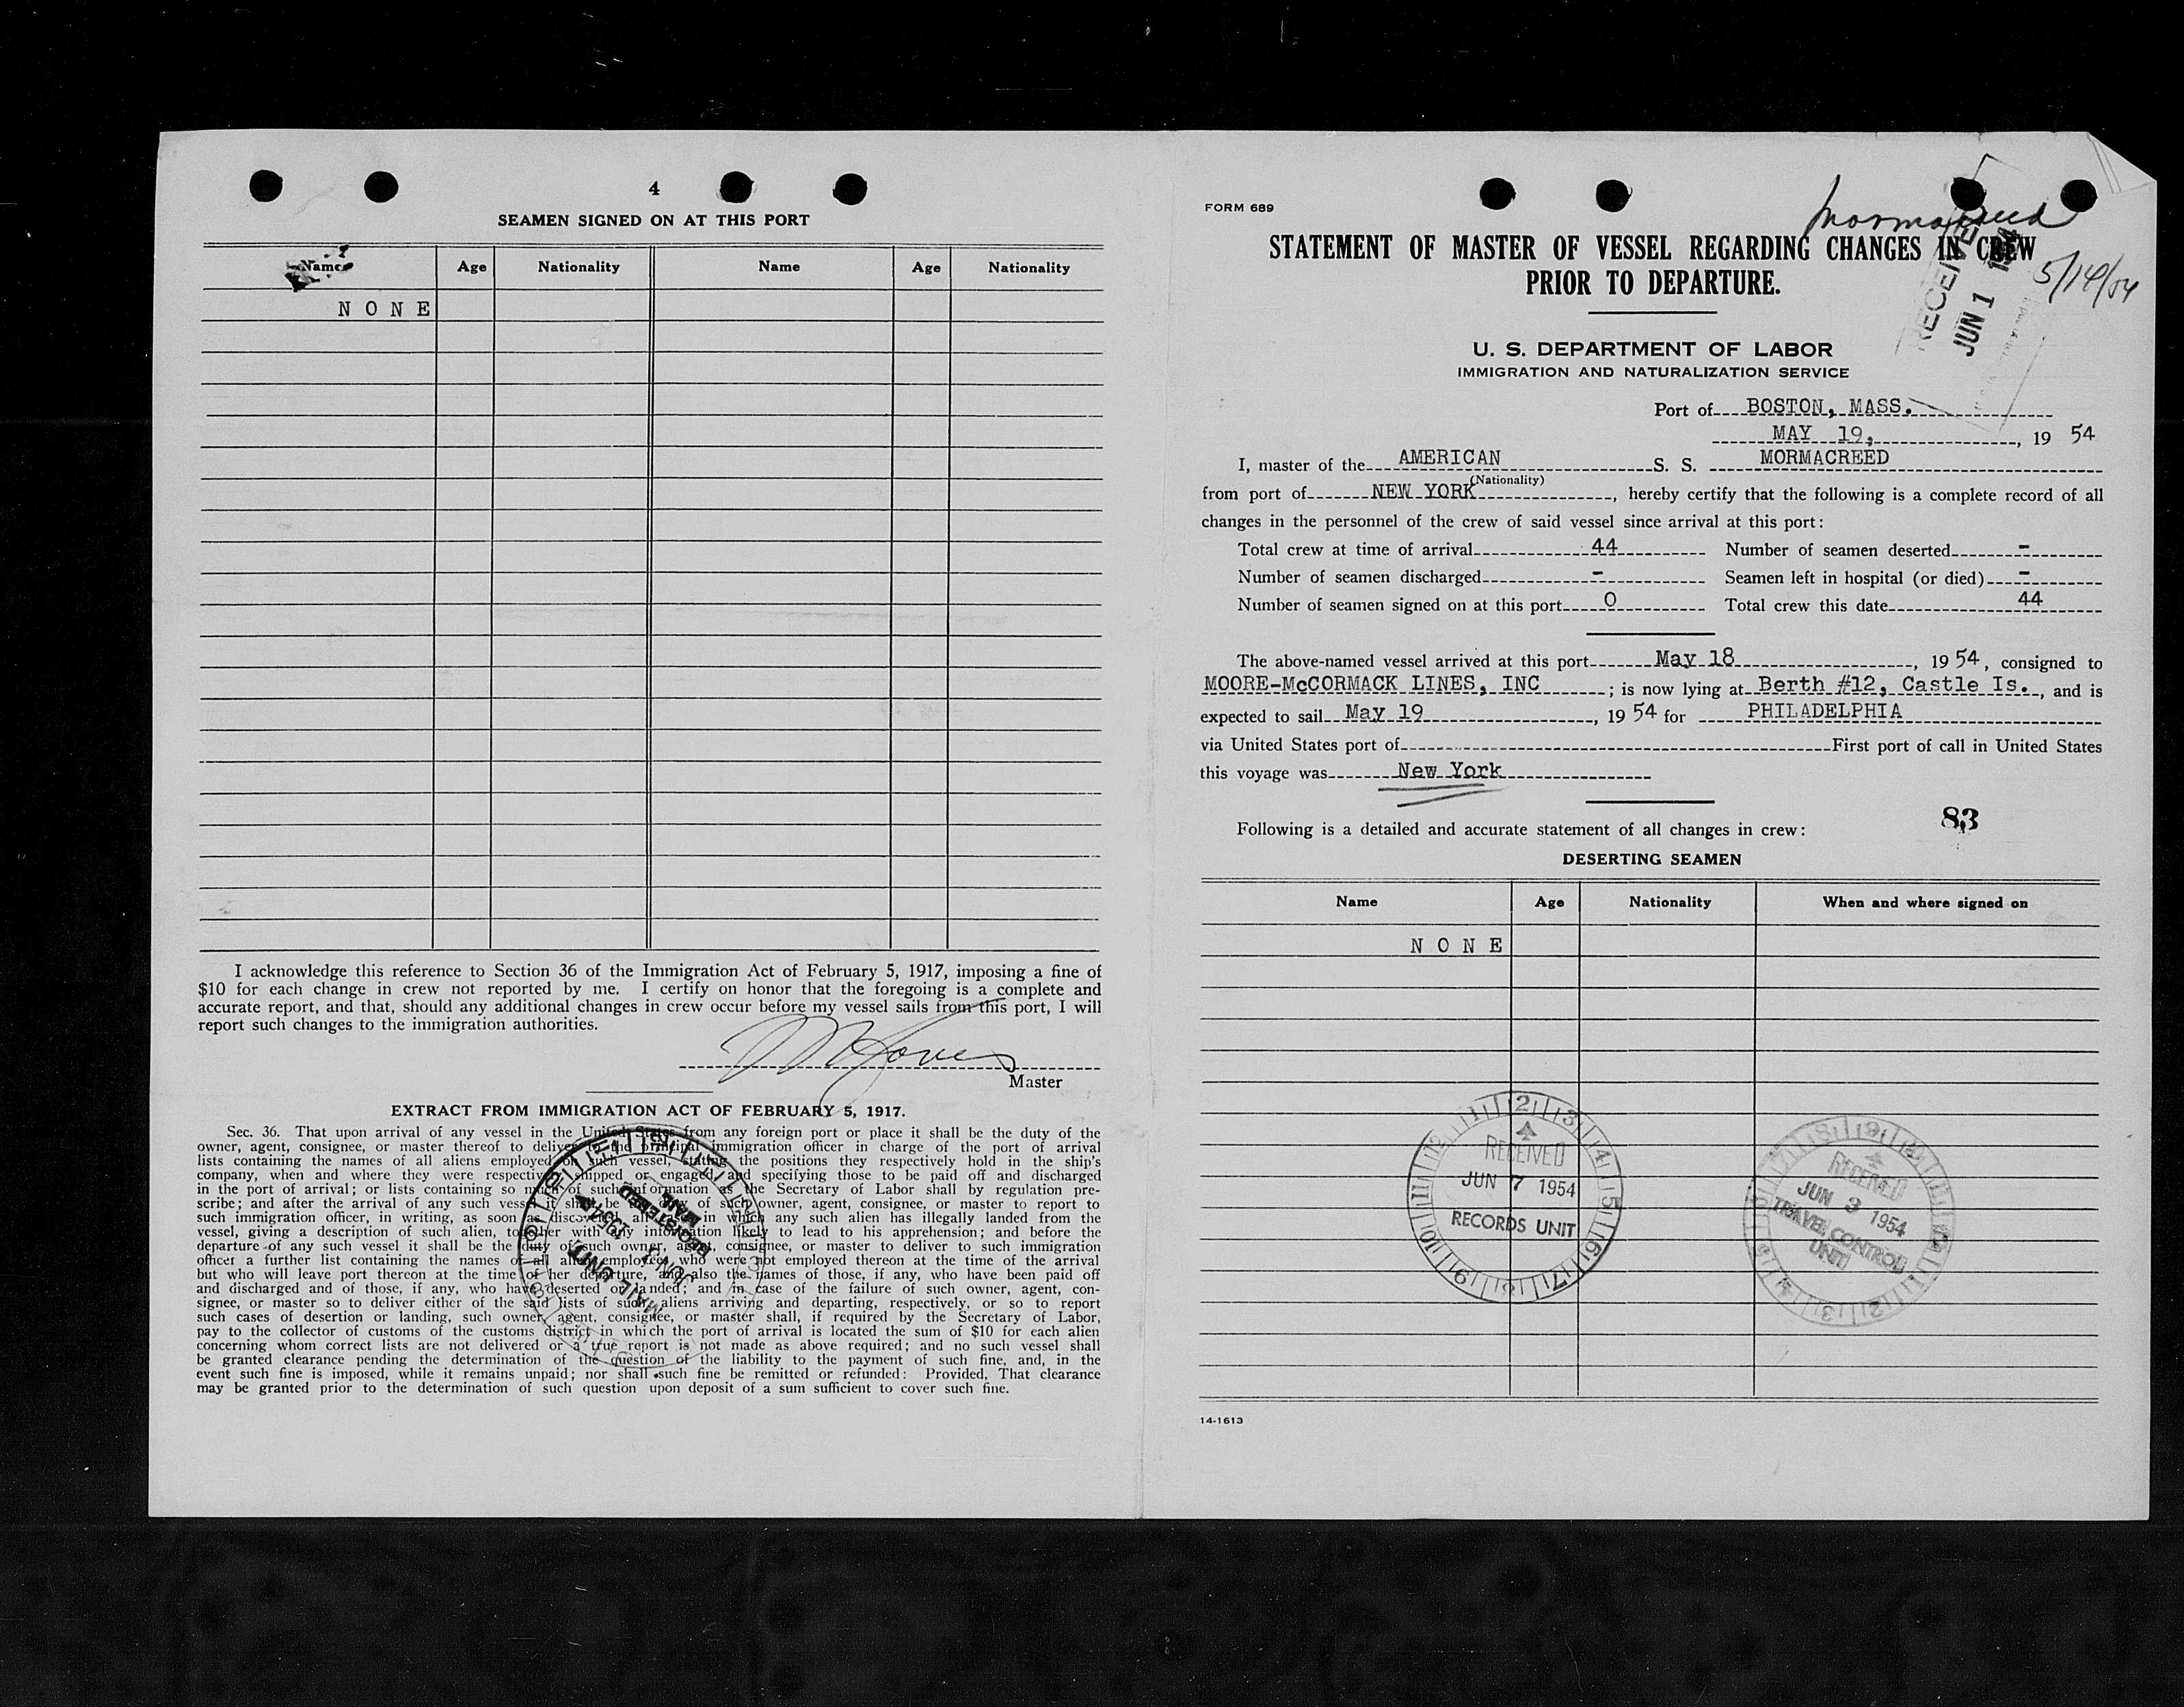 4
SEAMEN SIGNED ON AT THIS PORT
Name Age Nationality Name Age Nationality
N O N E
I acknowledge this reference to Section 36 of the Immigration Act of February 5, 1917, imposing a fine of
$10 for each change in crew not reported by me. I certify on honor that the foregoing is a complete and
accurate report, and that, should any additional changes in crew occur before my vessel sails from this port, I will
report such changes to the immigration authorities.
Jones
Master
EXTRACT FROM IMMIGRATION ACT OF FEBRUARY 5, 1917.
Sec. 36. That upon arrival of any vessel in the United States from any foreign port or place it shall be the duty of the
owner, agent, consignee, or master thereof to deliver to the principal immigration officer in charge of the port of arrival
lists containing the names of all aliens employed on such vessel, stating the positions they respectively hold in the ship's
company, when and where they were respectively shipped or engaged, and specifying those to be paid off and discharged
in the port of arrival; or lists containing so much of such information as the Secretary of Labor shall by regulation pre-
scribe; and after the arrival of any such vessel it shall be the duty of such owner, agent, consignee, or master to report to
such immigration officer, in writing, as soon as discovered, all cases in which any such alien has illegally landed from the
vessel, giving a description of such alien, together with any information likely to lead to his apprehension; and before the
departure of any such vessel it shall be the duty of such owner, agent, consignee, or master to deliver to such immigration
officer a further list containing the names of all alien employees who were not employed thereon at the time of the arrival
but who will leave port thereon at the time of her departure, and also the names of those, if any, who have been paid off
and discharged and of those, if any, who have deserted or landed; and in case of the failure of such owner, agent, con-
signee, or master so to deliver either of the said lists of such aliens arriving and departing, respectively, or so to report
such cases of desertion or landing, such owner, agent, consignee, or master shall, if required by the Secretary of Labor,
pay to the collector of customs of the customs district in which the port of arrival is located the sum of $10 for each alien
concerning whom correct lists are not delivered or a true report is not made as above required; and no such vessel shall
be granted clearance pending the determination of the question of the liability to the payment of such fine, and, in the
event such fine is imposed, while it remains unpaid; nor shall such fine be remitted or refunded: Provided, That clearance
may be granted prior to the determination of such question upon deposit of a sum sufficient to cover such fine.
REGISTERED
MAIL
JUN 1 1954
MAIL UNIT
FORM 689
Mormacreed
5/19/54
RECEIVED
JUN 1 1954
STATEMENT OF MASTER OF VESSEL REGARDING CHANGES IN CREW
PRIOR TO DEPARTURE.
U. S. DEPARTMENT OF LABOR
IMMIGRATION AND NATURALIZATION SERVICE
Port of BOSTON, MASS.
MAY 19, , 19 54
I, master of the AMERICAN S. S. MORMACREED
(Nationality)
from port of NEW YORK , hereby certify that the following is a complete record of all
changes in the personnel of the crew of said vessel since arrival at this port:
Total crew at time of arrival 44 Number of seamen deserted -
Number of seamen discharged - Seamen left in hospital (or died) -
Number of seamen signed on at this port 0 Total crew this date 44
The above-named vessel arrived at this port May 18 , 19 54, consigned to
MOORE-McCORMACK LINES, INC ; is now lying at Berth #12, Castle Is. , and is
expected to sail May 19 , 19 54 for PHILADELPHIA
via United States port of First port of call in United States
this voyage was New York
83
Following is a detailed and accurate statement of all changes in crew:
DESERTING SEAMEN
Name Age Nationality When and where signed on
N O N E
RECEIVED
JUN 7 1954
RECORDS UNIT
RECEIVED
JUN 3 1954
TRAVEL CONTROL
UNIT
14-1613